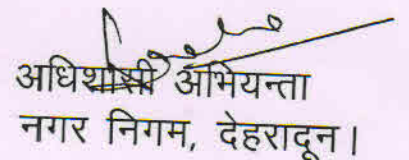 अधिशासी अभियन्ता
नगर निगम, देहरादून।